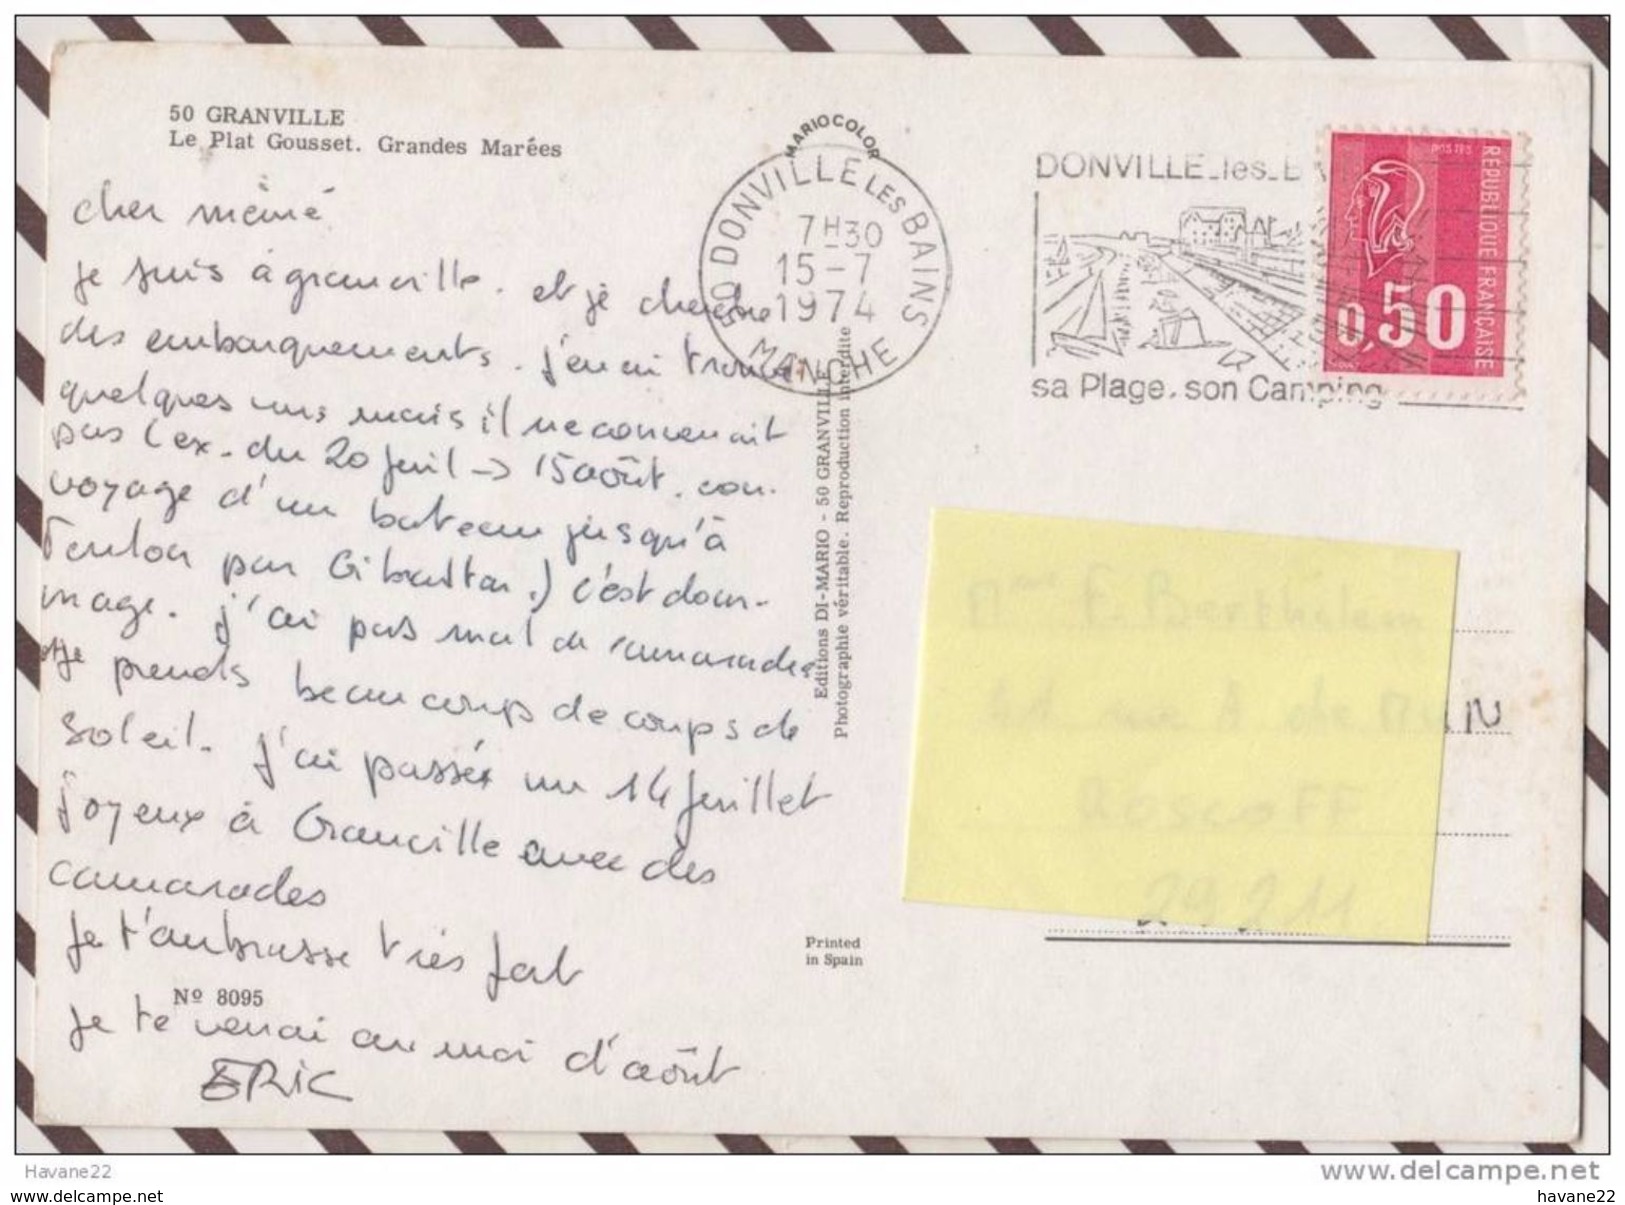 50 GRANVILLE
Le Plat Gousset. Grandes Marées
cher mémé
je suis à granville. et je cherche
des embarquements. j'en ai trouvé
quelques uns mais il ne convenait
pas (ex. du 20 juil -> 15 août. con-
voyage d'un bateau jusqu'à
Toulon par Gibraltar.) c'est dom-
mage. j'ai pas mal de camarades
et je prends beaucoup de coups de
soleil. j'ai passé un 14 juillet
joyeux à Granville avec des
camarades
je t'embrasse très fort
je te verrai au moi d'août
ERIC
Nº 8095
MARIOCOLOR
50 DONVILLE LES BAINS
7H30
15-7
1974
MANCHE
DONVILLE_les_BA
sa Plage. son Camping
POSTES
REPUBLIQUE FRANÇAISE
0,50
Editions DI-MARIO - 50 GRANVILLE
Photographie véritable. Reproduction interdite
Printed
in Spain
ROSCOFF
29211
Havane22
www.delcampe.net
www.delcampe.net
havane22